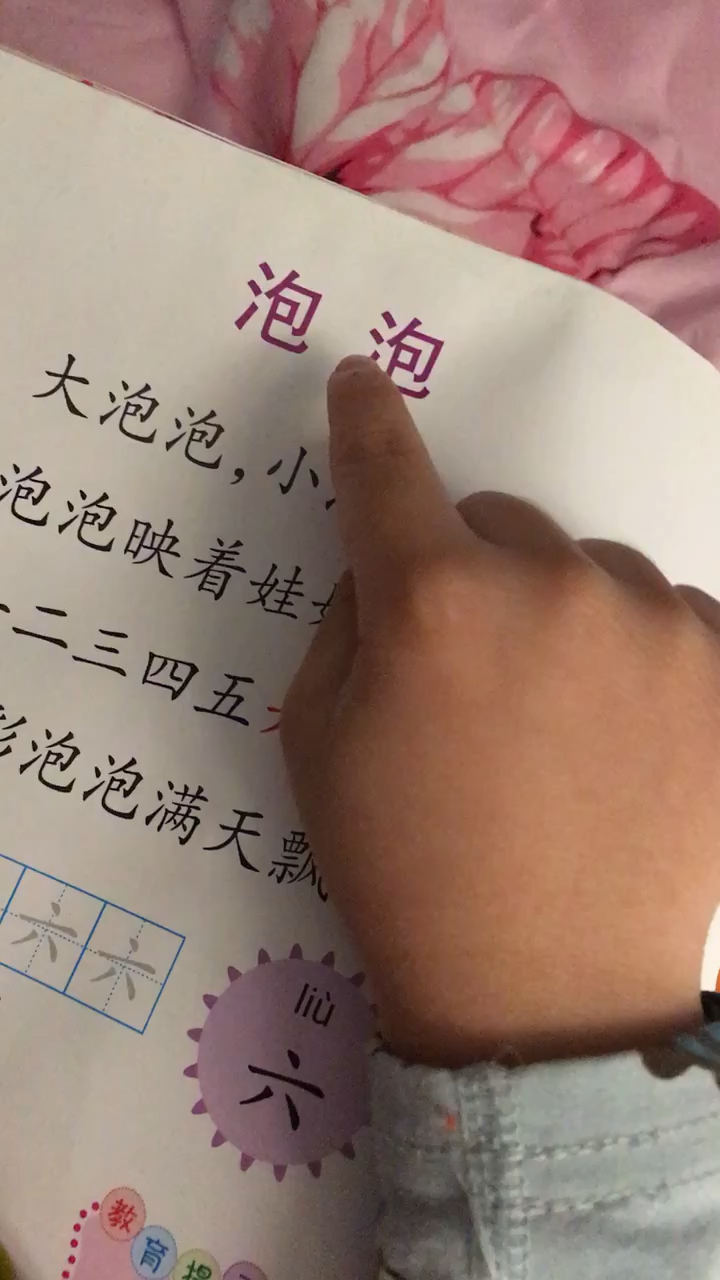 泡泡
大泡泡，小
泡泡映着娃
一二三四五
彩泡泡满天飘
六六
liù
六
教育提